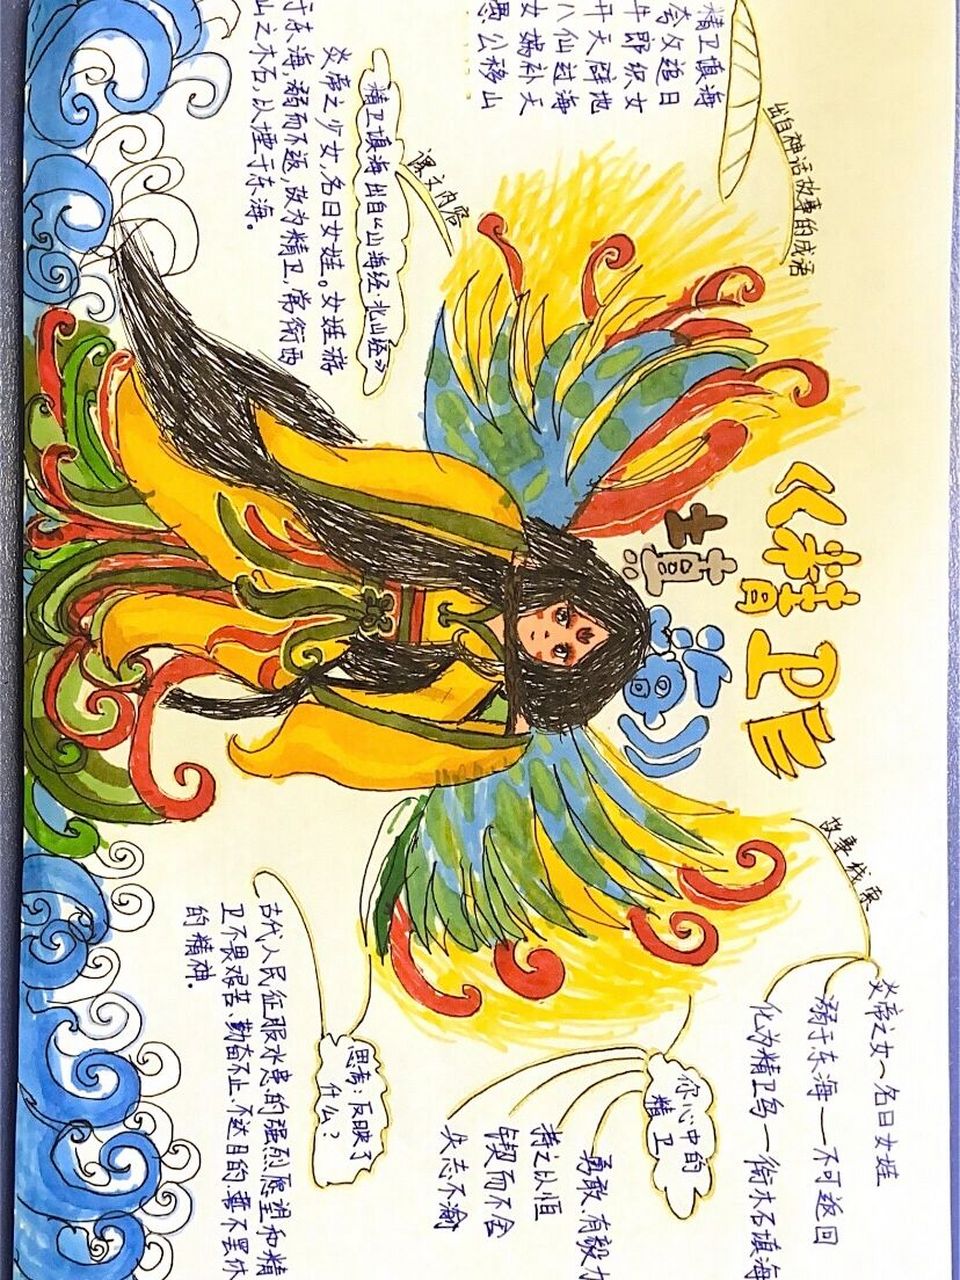 《精卫
填海》
出自神话故事的成语
精卫填海
夸父追日
牛郎织女
开天辟地
八仙过海
女娲补天
愚公移山
课文内容
精卫填海出自《山海经·北山经》
炎帝之少女,名曰女娃。女娃游
于东海,溺而不返,故为精卫,常衔西
山之木石,以堙于东海。
故事线索
炎帝之女——名曰女娃
溺于东海——不可返回
化为精卫鸟——衔木石填海
你心中的
精卫
勇敢、有毅力
持之以恒
锲而不舍
矢志不渝
思考:反映了
什么?
古代人民征服水患的强烈愿望和精
卫不畏艰苦、勤奋不止、不达目的誓不罢休
的精神。